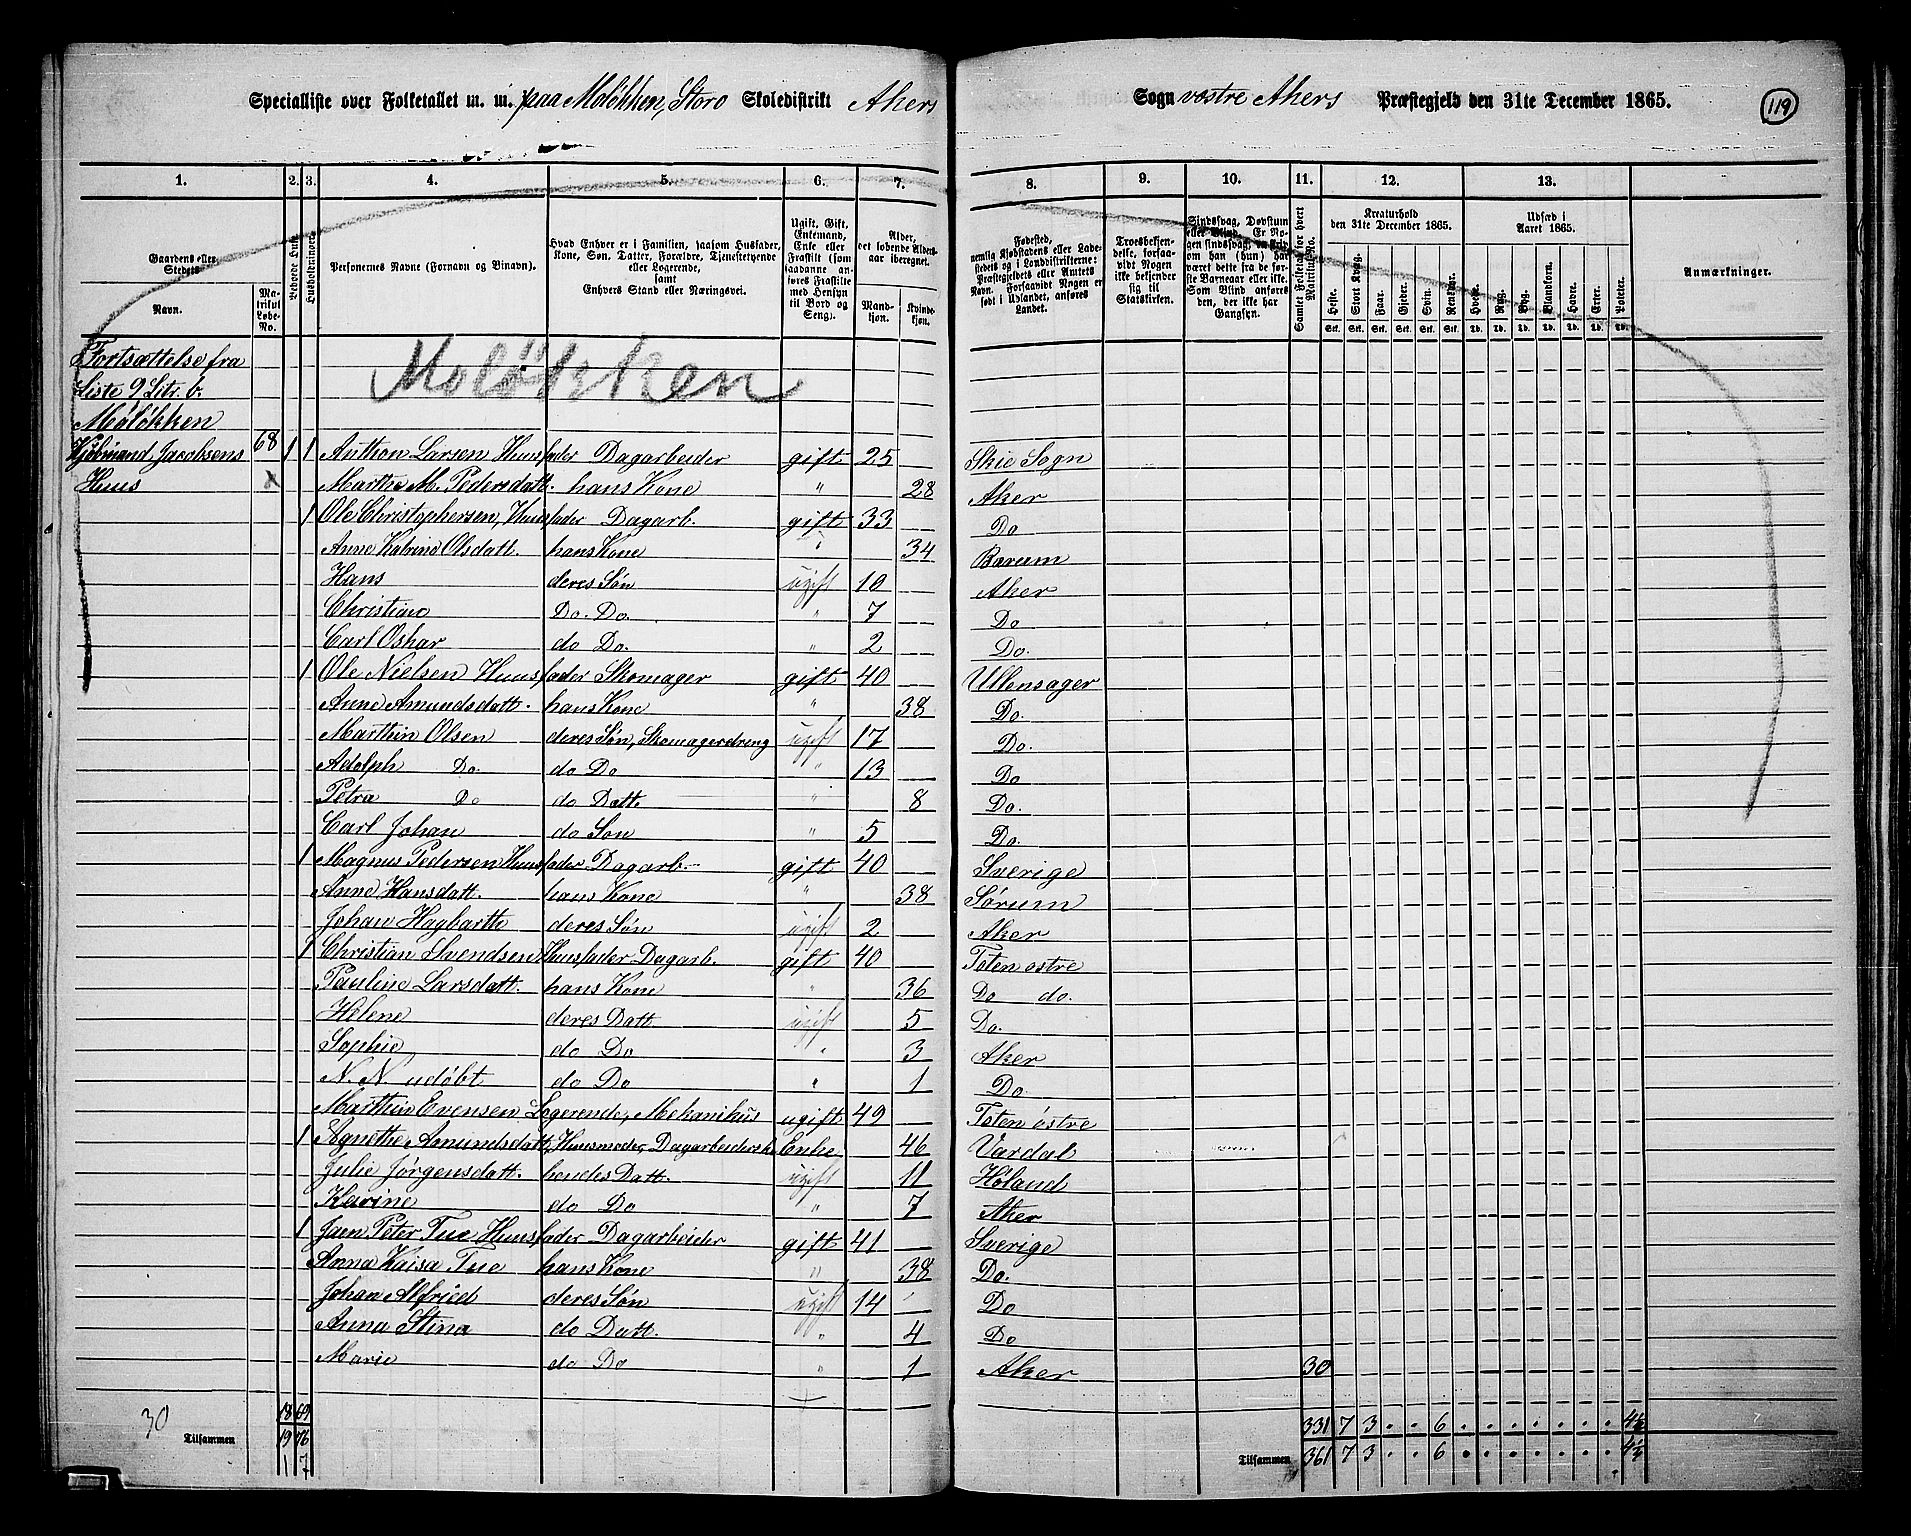 Specialliste over Folketallet m. m. paa Moløkken, Storo Skoledistrikt Akers Sogn vestre Akers Præstegjeld den 31te December 1865. 119
1. 2. 3. 4. 5. 6. 7. 8. 9. 10. 11. 12. 13.
Gaardens eller Stedets
Navn.
Matrikul Løbe-No.
Beboede Huse.
Husholdninger.
Personernes Navne (Fornavn og Binavn).
Hvad Enhver er i Familien, saasom Husfader, Kone, Søn, Datter, Forældre, Tjenestetyende eller Logerende, samt Enhvers Stand eller Næringsvei.
Ugift, Gift, Enkemand, Enke eller Fraskilt (som saadanne anføres Fraskilte med Hensyn til Bord og Seng).
Alder, det løbende Aldersaar iberegnet.
Mandkjøn. Kvindekjøn.
Fødested, nemlig Kjøbstadens eller Ladestedets og i Landdistrikterne: Præstegjeldets eller Amtets Navn. Forsaavidt Nogen er født i Udlandet, anføres Landet.
Troesbekjendelse, forsaavidt Nogen ikke bekjender sig til Statskirken.
Sindssvag, Døvstum eller Blind. Er Nogen sindssvag, anføres om han (hun) har været dette fra de første Barneaar eller ikke. Som Blind anføres den, der ikke har Gangsyn.
Samlet Folketal for hvert Matrikul-No.
Kreaturhold den 31te December 1865.
Heste. Stort Kvæg. Faar. Gjeder. Svin. Rensdyr.
Stk. Stk. Stk. Stk. Stk. Stk.
Udsæd i Aaret 1865.
Hvede. Rug. Byg. Blandkorn. Havre. Erter. Poteter.
Td. Td. Td. Td. Td. Td. Td.
Anmærkninger.
Fortsættelse fra
Liste 9 Litr. b.
Moløkken
Moløkken
Jacobsens 68 1 1 Anthon Larsen Huusfader Dagarbeider gift 25 Skie Sogn
Huus Marthe M. Pedersdatt. hans Kone " 28 Aker
1 Ole Christophersen, Huusfader Dagarb. gift 33 Do
Anne Katrine Olsdatt. hans Kone " 34 Bærum
Hans deres Søn ugift 10 Aker
Christian Do. Do. " 7 Do
Carl Oskar do Do. " 2 Do.
1 Ole Nielsen Huusfader Skomager gift 40 Ullensager
Anne Amundsdatt. hans Kone " 38 Do.
Marthin Olsen deres Søn, Skomagerdreng ugift 17 Do.
Adolph Do. do Do " 13 Do
Petra Do do Datt. " 8 Do.
Carl Johan do Søn " 5 Do.
1 Magnus Pedersen Huusfader Dagarb. gift 40 Sverige
Anne Hansdatt. hans Kone " 38 Sørum
Johan Hagbarth deres Søn ugift 2 Aker
1 Christian Svendsen Huusfader Dagarb. gift 40 Toten østre
Pauline Larsdatt. hans Kone " 36 Do do.
Helene deres Datt ugift 5 Do.
Sophie do Do " 3 Aker
N. N. udøbt do Do " 1 Do.
Marthin Evensen Logerende, Mekanikus ugift 49 Toten østre
1 Agnethe Amundsdatt, Huusmoder, Dagarbeidersk. Enke 46 Vardal
Julie Jørgensdatt. hendes Datt. ugift 11 Høland
Karine do Do " 7 Aker
1 Jaen Peter Tue Huusfader Dagarbeider gift 41 Sverige
Anna Kaisa Tue hans Kone " 38 Do.
Johan Alfried deres Søn ugift 14 Do
Anna Stina do Datt. " 4 Do
Marie do Do " 1 Aker 30
30 18 69 331 7 3 . . 6 . . . . . . . 4½
Tilsammen 19 76 Tilsammen 361 7 3 . . 6 . . . . . . . 4½
1 7